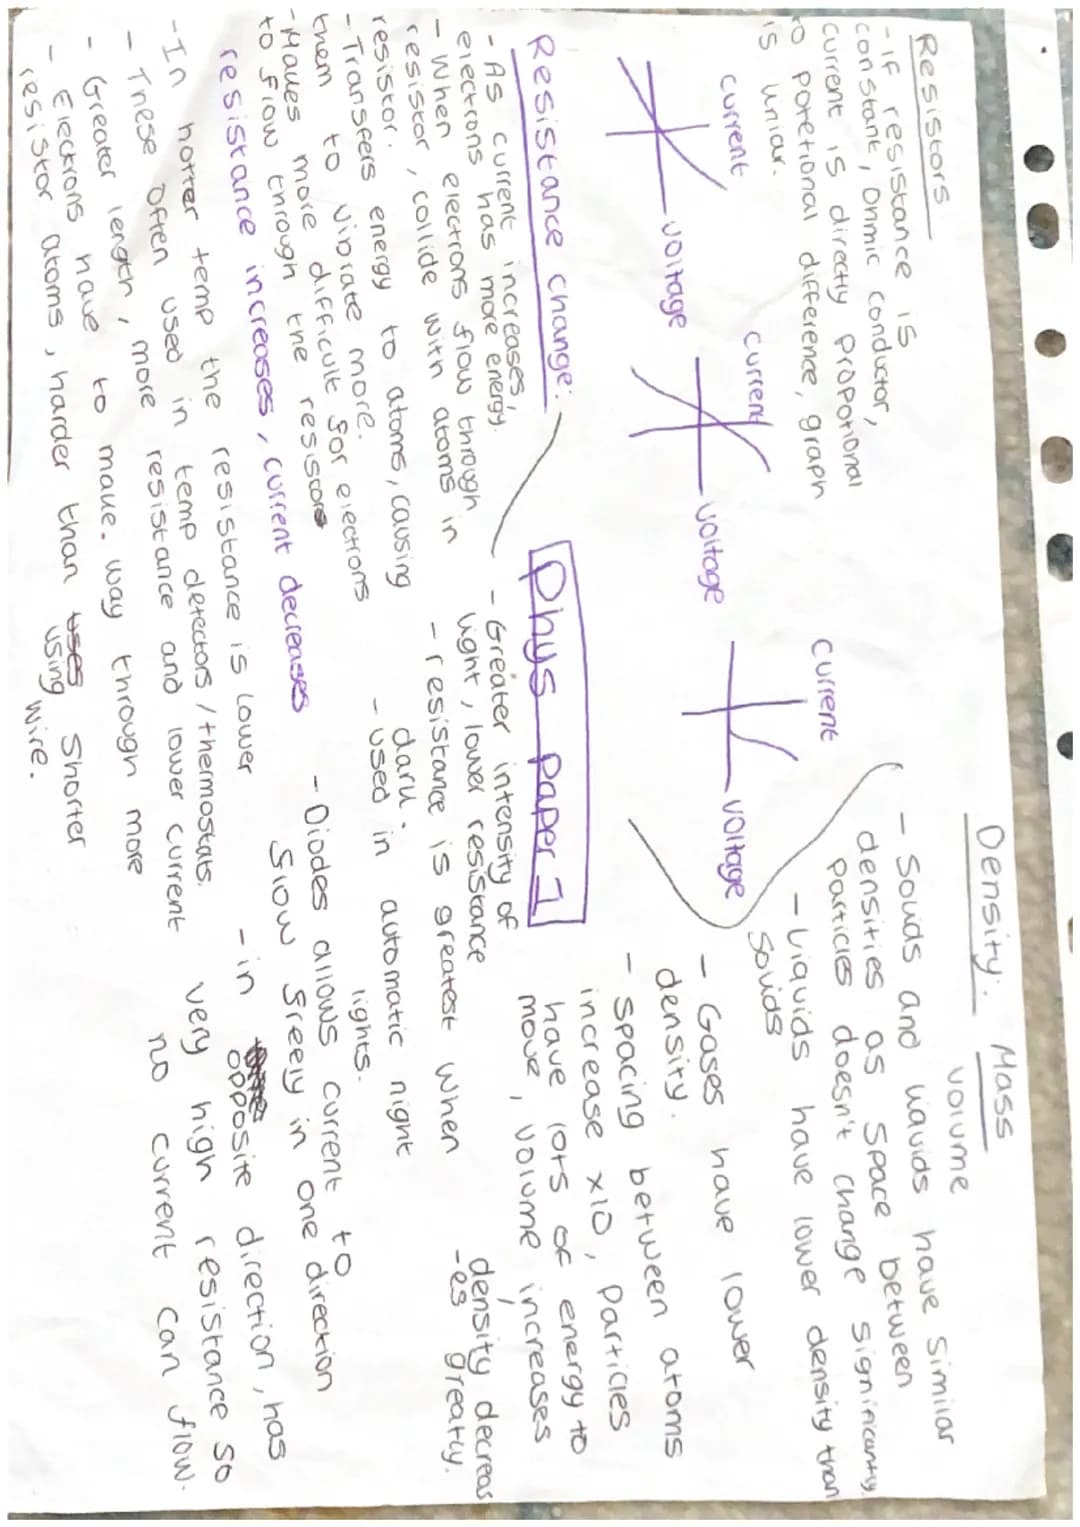 Resistors
- if resistance is
constant, ohmic conductor,
current is directly propotional
to potetional difference, graph
is uniour.
current
voltage
current
voltage
current
voltage
Density: Mass
volume
- Solids and liquids have similar
densities as space between
particles doesn't change significantly
- Liquids have lower density than
Solids
- Gases have lower
density.
- spacing between atoms
increase x10, particles
have lots of energy to
move, volume increases
density decreas
-es greatly.
Phys paper 1
Resistance change:
- As current increases,
electrons has more energy.
- When electrons flow through
resistor, collide with atoms in
resistor.
- Transfers energy to atoms, causing
them to vibrate more.
- Makes more difficult for electrons
to flow through the resistors
resistance increases, current decreases
- Greater intensity of
light, lower resistance
- resistance is greatest when
dark.
- used in automatic night
lights.
- Diodes allows current to
flow freely in one direction
- in opposite direction, has
very high resistance so
no current can flow.
- In hotter temp the resistance is lower
- These often used in temp detectors / thermostats.
- Greater length, more resistance and lower current
- Electrons have to make way through more
resistor atoms, harder than uses using shorter
wire.